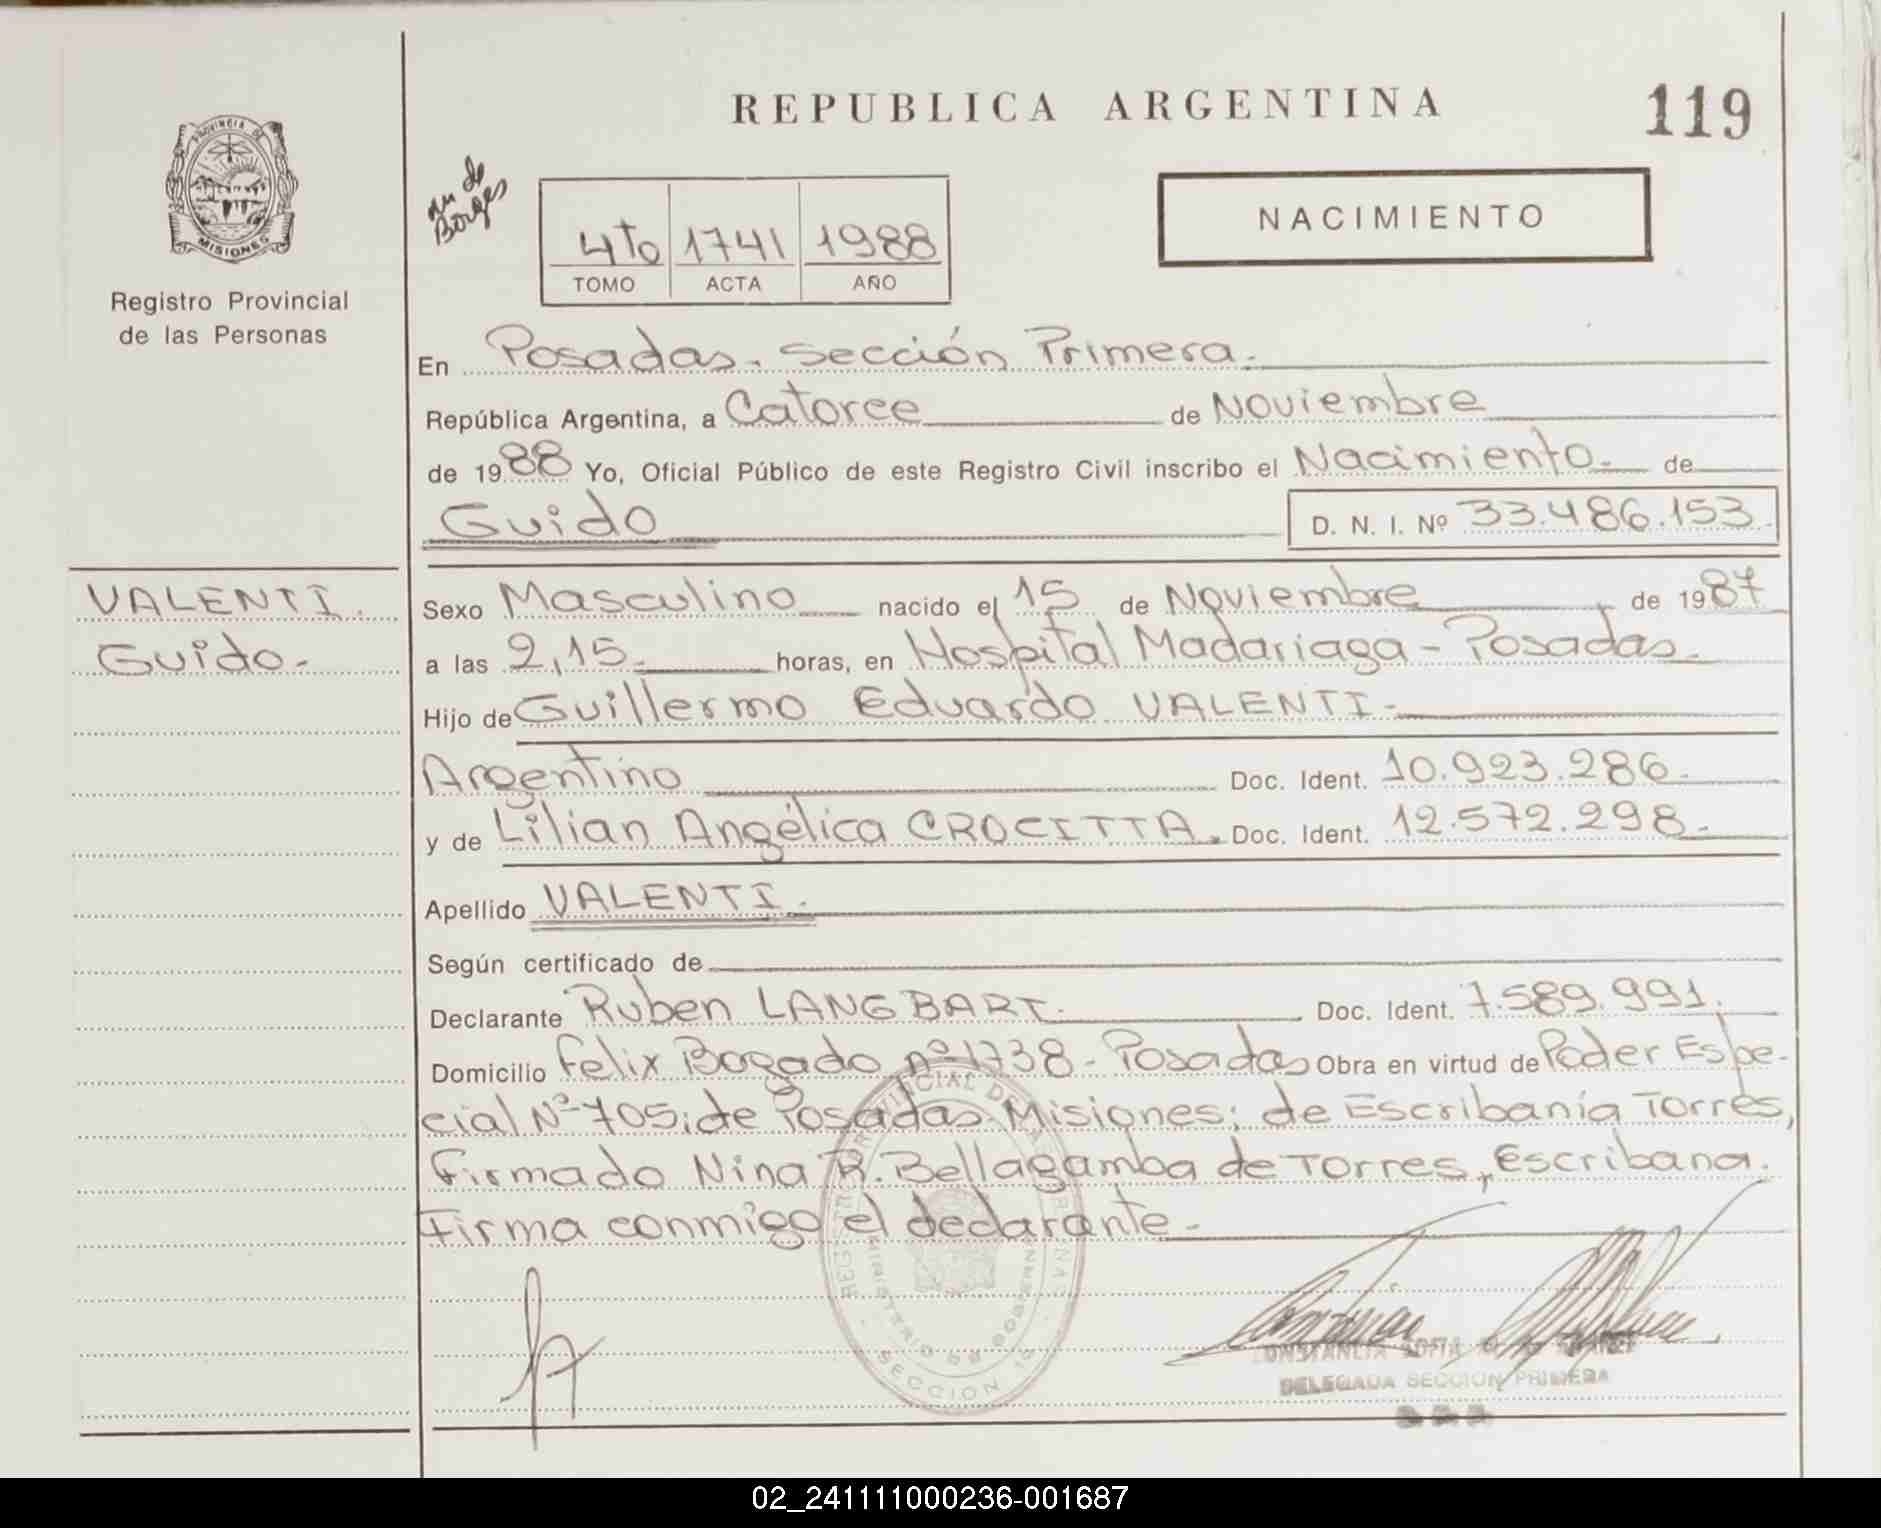 REPUBLICA ARGENTINA
119
PROVINCIA DE
MISIONES
Registro Provincial
de las Personas
de
Borges
4to 1741 1988
TOMO ACTA AÑO
NACIMIENTO
En Posadas. Sección Primera.
República Argentina, a Catorce de Noviembre
de 1988 Yo, Oficial Público de este Registro Civil inscribo el Nacimiento. de
Guido
D. N. I. Nº 33.486.153
VALENTI.
Guido.-
Sexo Masculino nacido el 15 de Noviembre de 1987
a las 2,15. horas, en Hospital Madariaga - Posadas.
Hijo de Guillermo Eduardo VALENTI.
Argentino Doc. Ident. 10.923.286.
y de Lilian Angélica CROCITTA. Doc. Ident. 12.572.298.
Apellido VALENTI.
Según certificado de
Declarante Ruben LANGBART. Doc. Ident. 7.589.991.
Domicilio Felix Bogado nº 1738 - Posadas Obra en virtud de Poder Espe-
cial Nº 705; de Posadas Misiones; de Escribanía Torres,
Firmado Nina R. Bellagamba de Torres, Escribana.
Firma conmigo el declarante.-
MINISTERIO DE GOBIERNO
SECCION 1a
CONSTANCIA SOFIA
DELEGADA SECCION PRIMERA
02_241111000236-001687